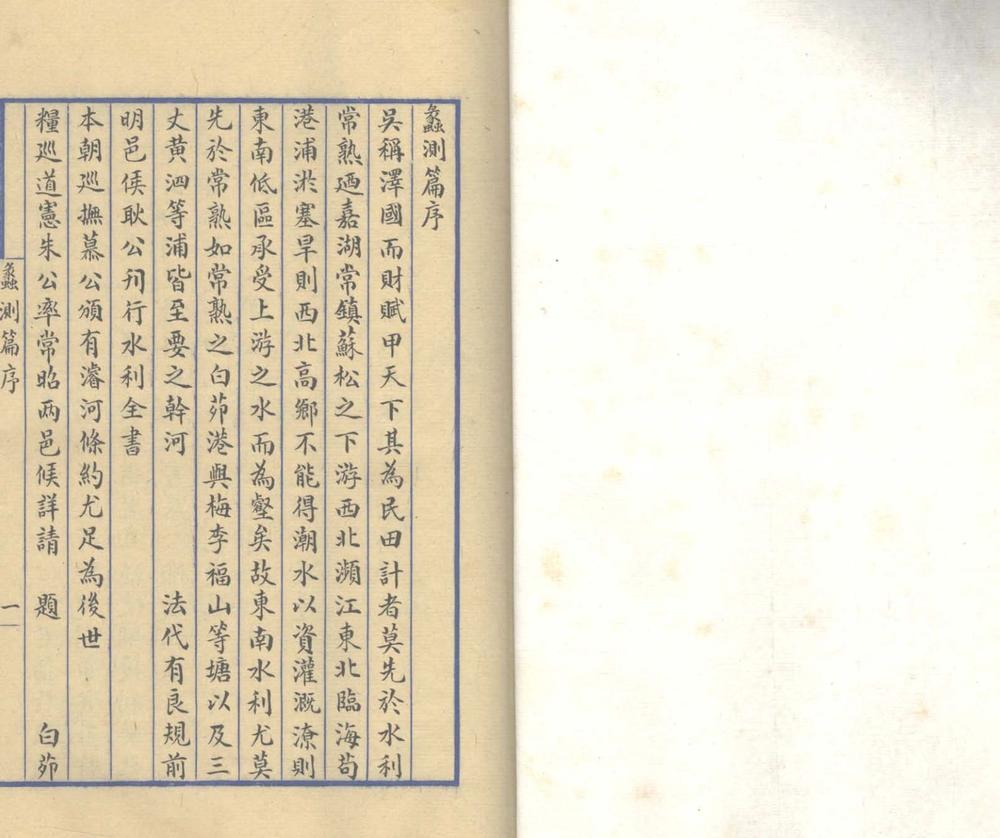 蠡測篇序
吳稱澤國而財賦甲天下其為民田計者莫先於水利
常熟廼嘉湖常鎮蘇松之下游西北瀕江東北臨海茍
港浦淤塞旱則西北高鄉不能得潮水以資灌溉潦則
東南低區承受上游之水而為壑矣故東南水利尤莫
先於常熟如常熟之白茆港與梅李福山等塘以及三
丈黄泗等浦皆至要之幹河　　　　法代有良規前
明邑侯耿公刋行水利全書
本朝廵撫慕公頒有濬河條約尤足為後世
糧廵道憲朱公率常昭两邑候詳請　題　　　白茆
蠡測篇序　一